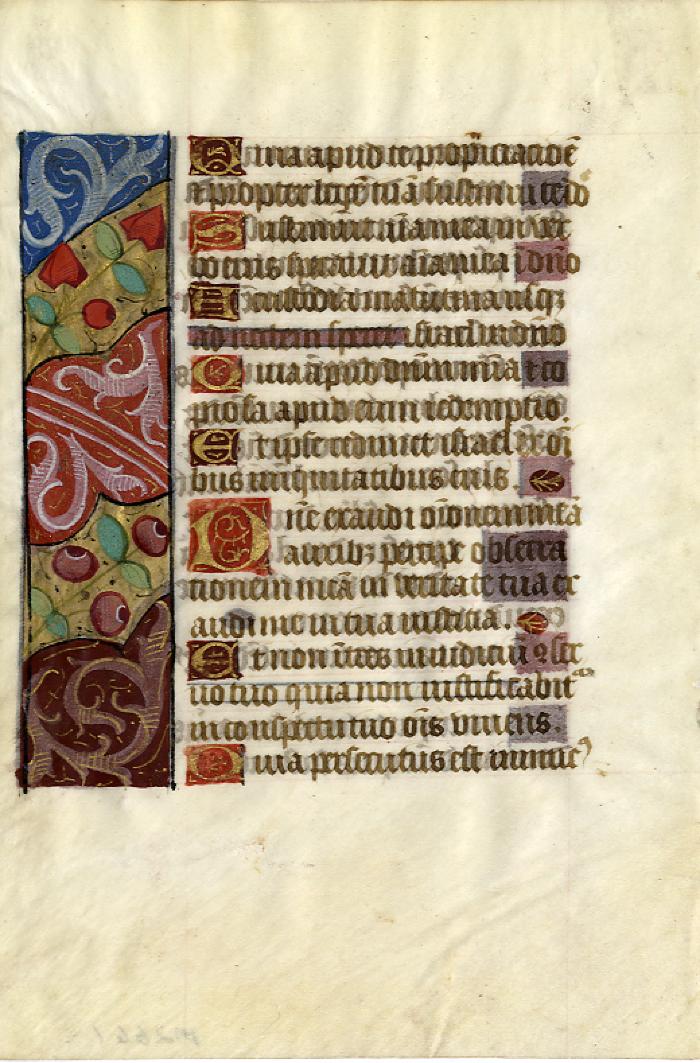 Quia apud te propiciacio ē
et propter legē tuā sustinui te dō
Sustinuit aīa mea in ver
bo eius speravit aīa mea ī dn̄o
A custodia matutina usq̢
ad noctem speret israel in dn̄o
Quia apud dn̄m mīa et co
piosa apud eum redemptio
Et ipse redimet israel ex oī
bus iniquitatibus eius.
Dn̄e exaudi or̄onem meā
auribꝫ percipe obsecra
tionem meā in veritate tua ex
audi me in tua iusticia.
Et non ītres in iudiciū cū ser
uo tuo quia non iustificabit᷑
in conspectu tuo oīs vivens.
Quia persecutus est inimic᷒